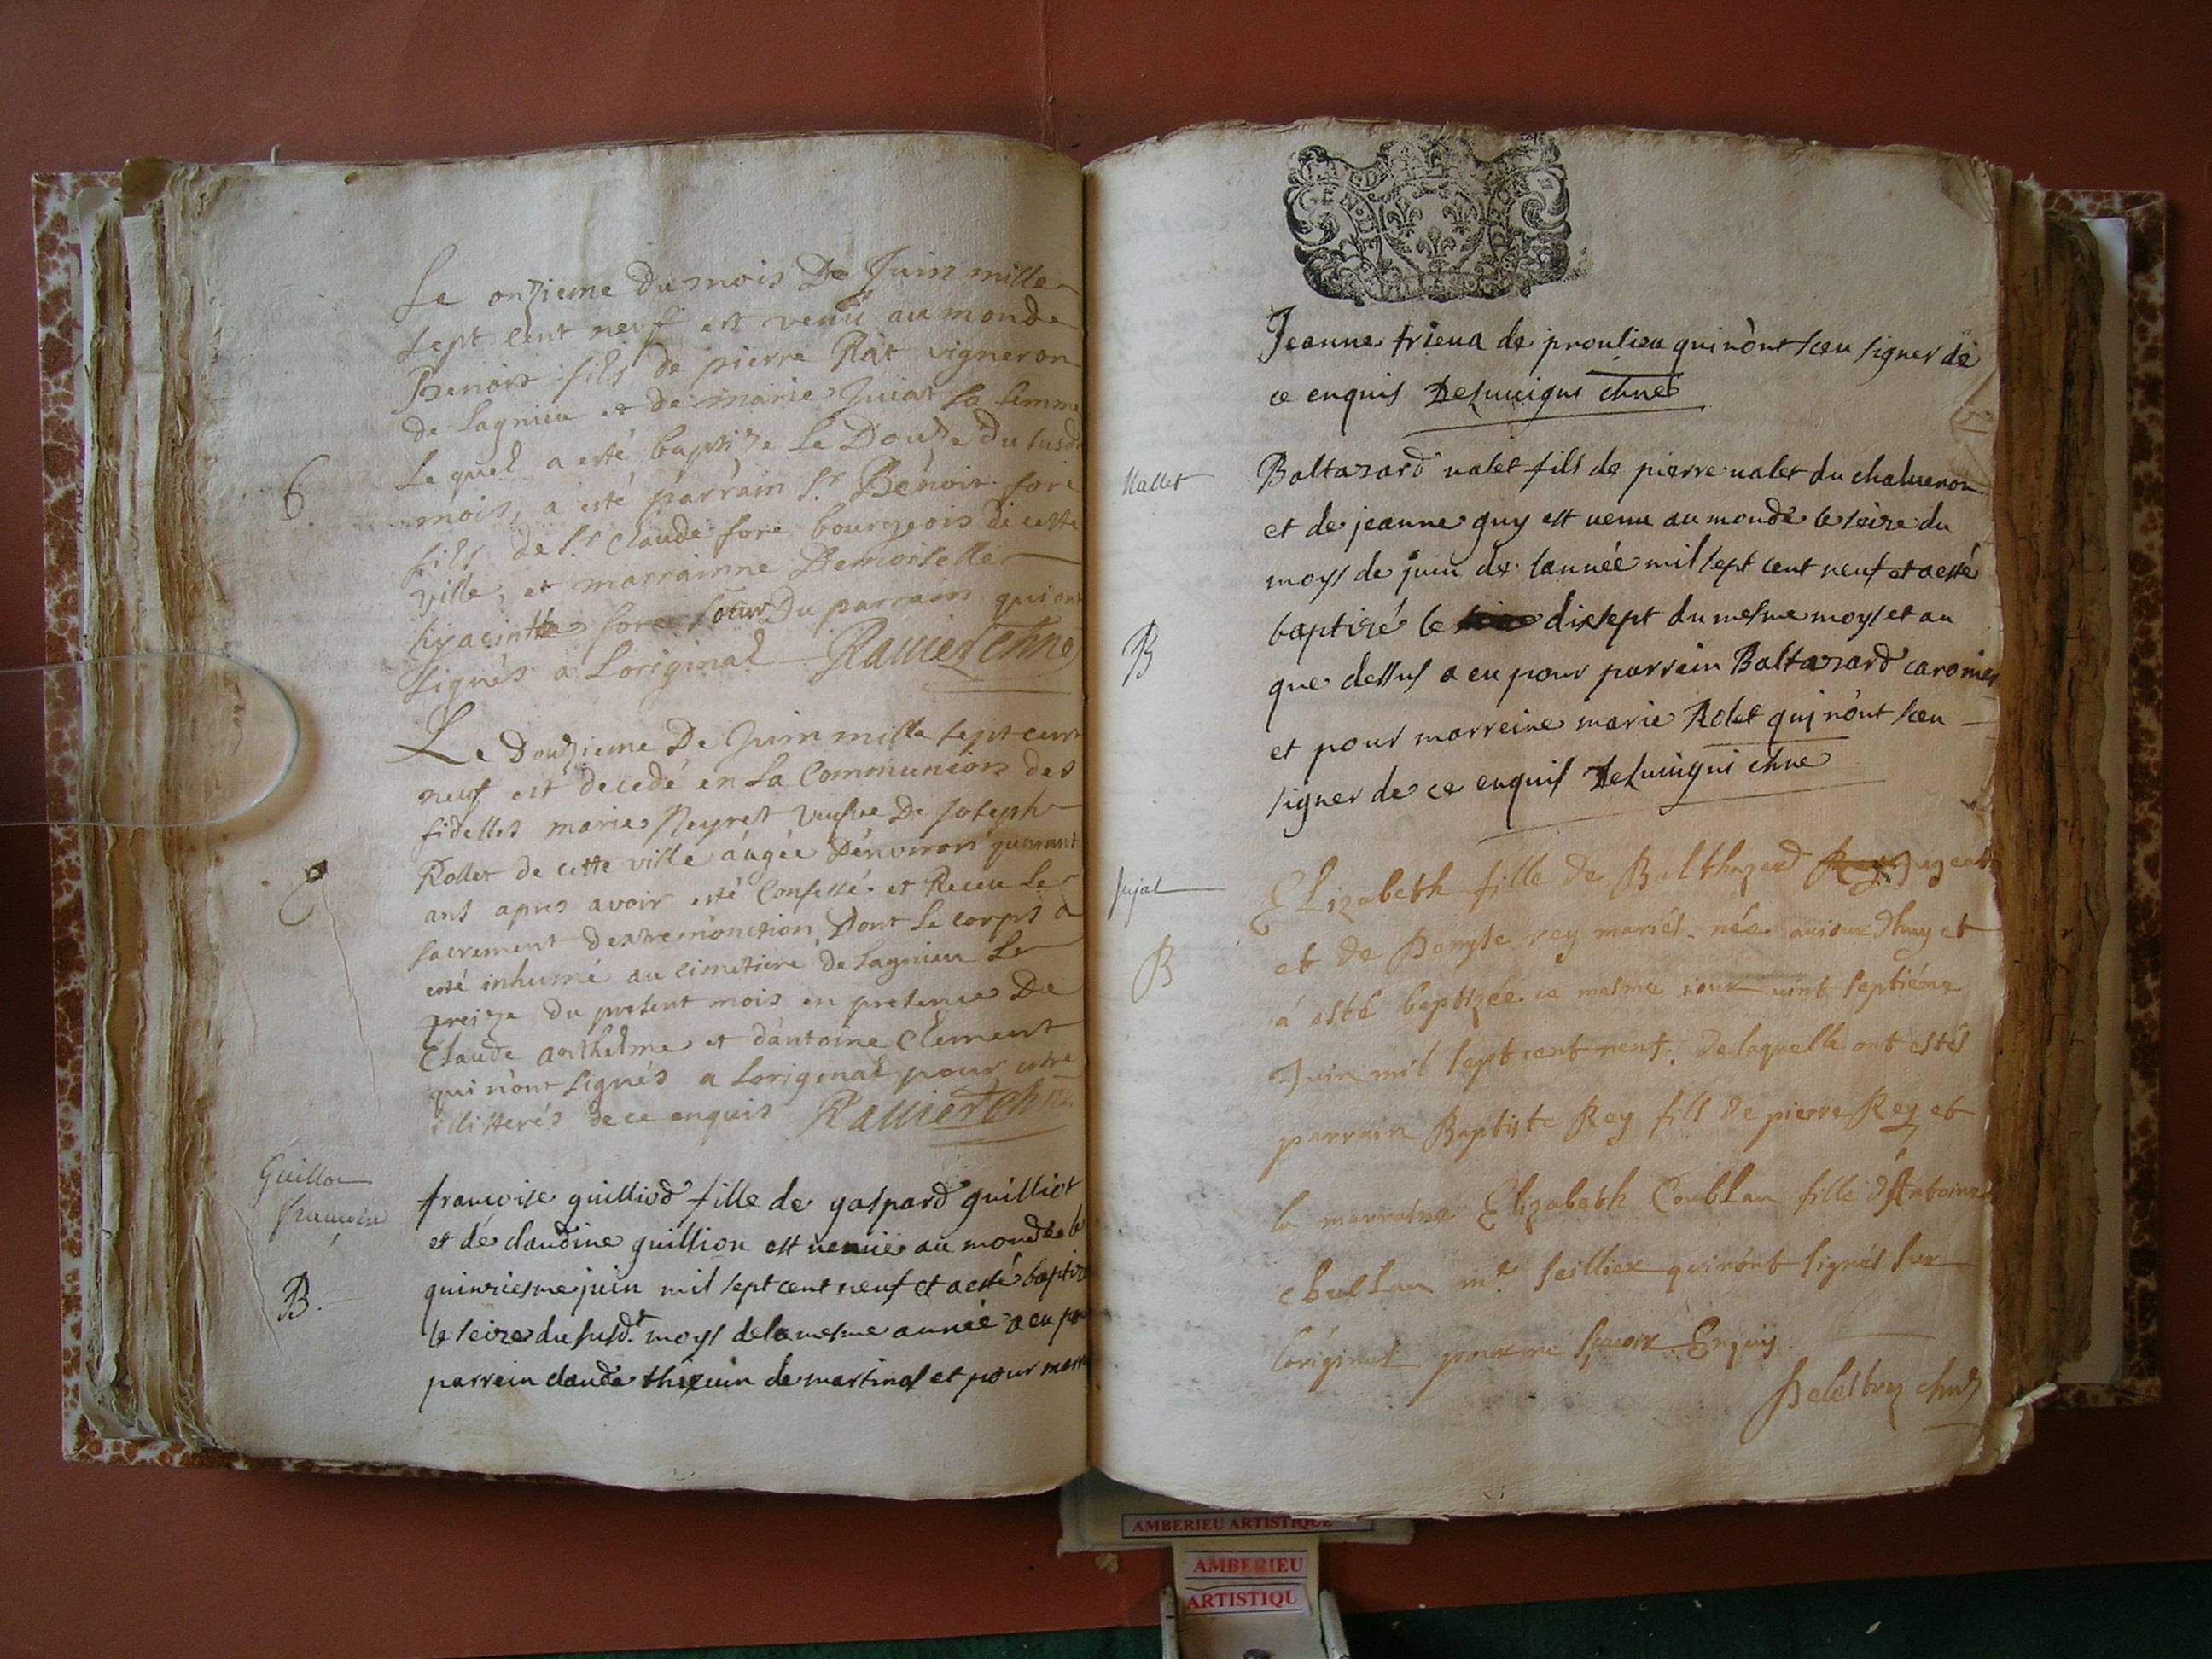 Le onzieme du mois De Juin mille
sept Cent neuf est venü au monde
Benoit fils de pierre Rat vigneron
de Lagnieu et de marie Jujat sa femme
Le quel a esté baptize Le Douze du susd
6
mois, a esté parrain Sr Benoit fore
fils de Sr Claude fore bourgeois de cette
ville, et marrainne Demoiselle
hyacinthe fore soeur Du parrain qui ont
signés a Loriginal Ravier
Le Douzieme De Juin mille sept cent
neuf est decedé en La Communion des
fidelles marie Neyret veufve De Joseph
Rollet de cette ville aagée Denviron quarant
ans apres avoir esté Confessé et Receu Le
sacrement dextremonction Dont le corps a
esté inhumé au cimetiere de Lagnieu Le
treize du present mois en presence De
Claude anthelme et dantoine Clement
qui nont signés a Loriginal pour estre
illitterés de ce enquis Ravier
Guillon
francoise
francoise guilliod fille de gaspard guilliot
et de claudine guillion est venuë au monde le
quinziesme juin mil sept cent neuf et a esté baptiz
B.
le seize du susdt moys de la mesme année a eu pour
parrein claude de martinal et pour marr
GEN
Jeanne trieua de proulieu qui nont sceu signer de
ce enquis
Vallet
Baltazard valet fils de pierre valet du chalueron
et de jeanne guy est venu au monde le seize du
moys de juin de lannée mil sept cent neuf et a esté
B
baptizé le dixsept du mesme moys et an
que dessus a eu pour parrein Baltazard caronier
et pour marreine marie Rolet qui nont sceu
signer de ce enquis
Jujat
Elizabeth fille de Balthazard Jugeat
B
et de Benoyte rey mariés née auiourdhuy et
á esté baptizée ce mesme iour vint septiéme
Juin mil sept cent neuf; de laquelle ont estés
parrain Baptiste Rey fils de pierre Rey et
la marraine Elizabeth Coublan fille dAntoine
mr seillier qui nónt signés sur
l'original pour ne sçavoir Enquis
AMBERIEU ARTISTIQUE
AMBERIEU
ARTISTIQU